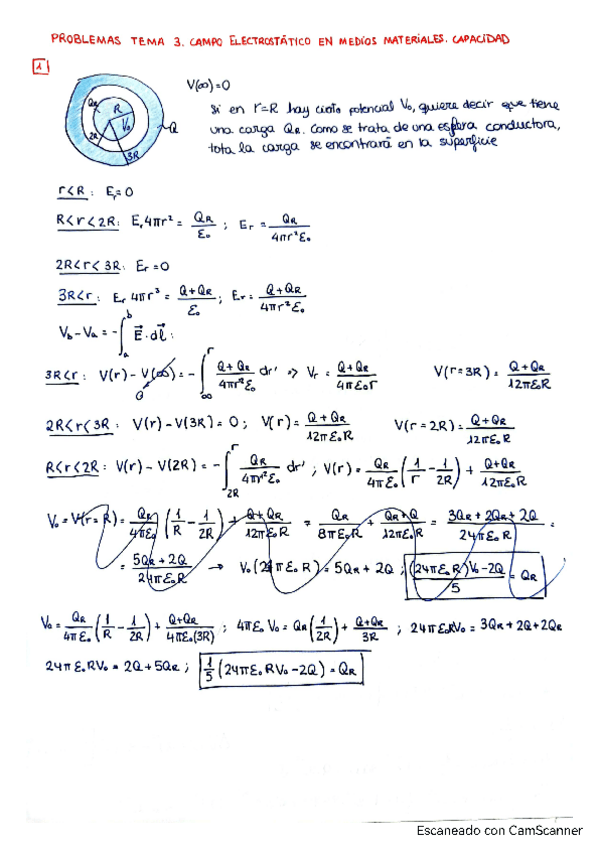 PROBLEMAS TEMA 3. CAMPO ELECTROSTÁTICO EN MEDIOS MATERIALES. CAPACIDAD
1
V(∞)=0
Si en r=R hay cierto potencial V₀, quiere decir que tiene
una carga QR. Como se trata de una esfera conductora,
tota la carga se encontrará en la superficie
QR R V₀ 2R 3R Q
r<R: Er=0
R<r<2R: Er4πr² = QR/ε₀ ; Er = QR/4πr²ε₀
2R<r<3R: Er=0
3R<r: Er 4πr³ = Q+QR/ε₀ ; Er = Q+QR/4πr²ε₀
Vb-Va = -∫ₐᵇ E⃗·dl⃗ :
3R<r: V(r)-V(∞) = -∫∞ʳ Q+QR/4πr'²ε₀ dr' => Vr = Q+QR/4πε₀r V(r=3R) = Q+QR/12πε₀R
0
2R<r<3R: V(r)-V(3R)=0; V(r) = Q+QR/12πε₀R V(r=2R) = Q+QR/12πε₀R
R<r<2R: V(r)-V(2R) = -∫2Rʳ QR/4πr'²ε₀ dr' ; V(r) = QR/4πε₀ (1/r - 1/2R) + Q+QR/12πε₀R
V₀ = V(r=R) = QR/4πε₀ (1/R - 1/2R) + Q+QR/12πε₀R = QR/8πε₀R + QR+Q/12πε₀R = 3QR+2QR+2Q/24πε₀R =
= 5QR+2Q/24πε₀R → V₀(24πε₀R) = 5QR+2Q ; (24πε₀R)V₀-2Q/5 = QR
V₀ = QR/4πε₀ (1/R - 1/2R) + Q+QR/4πε₀(3R) ; 4πε₀V₀ = QR(1/2R) + Q+QR/3R ; 24πε₀RV₀ = 3QR+2Q+2QR
24πε₀RV₀ = 2Q+5QR ; 1/5 (24πε₀RV₀-2Q) = QR
Escaneado con CamScanner